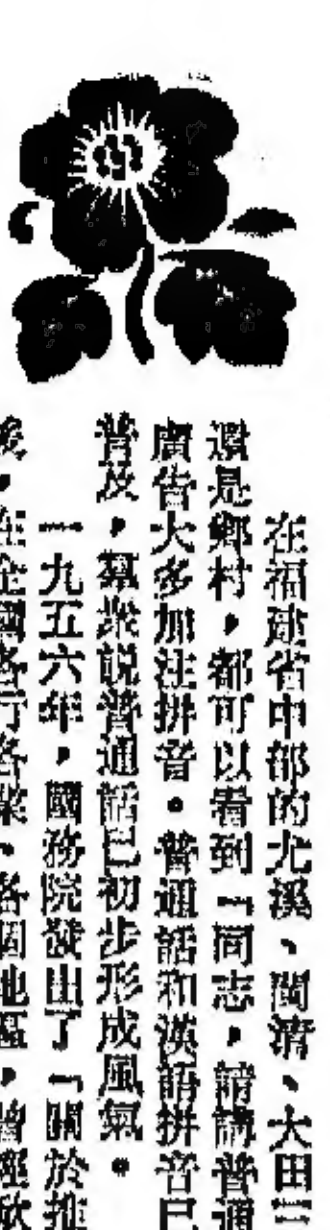 在福建省中部的尤溪、閩清、大田三
還是鄉村，都可以看到「同志，請講普通
廣告大多加注拼音。普通話和漢語拼音已
普及，羣衆說普通話已初步形成風氣。
一九五六年，國務院發出了「關於推
後，在全國各行各業、各個地區，曾經